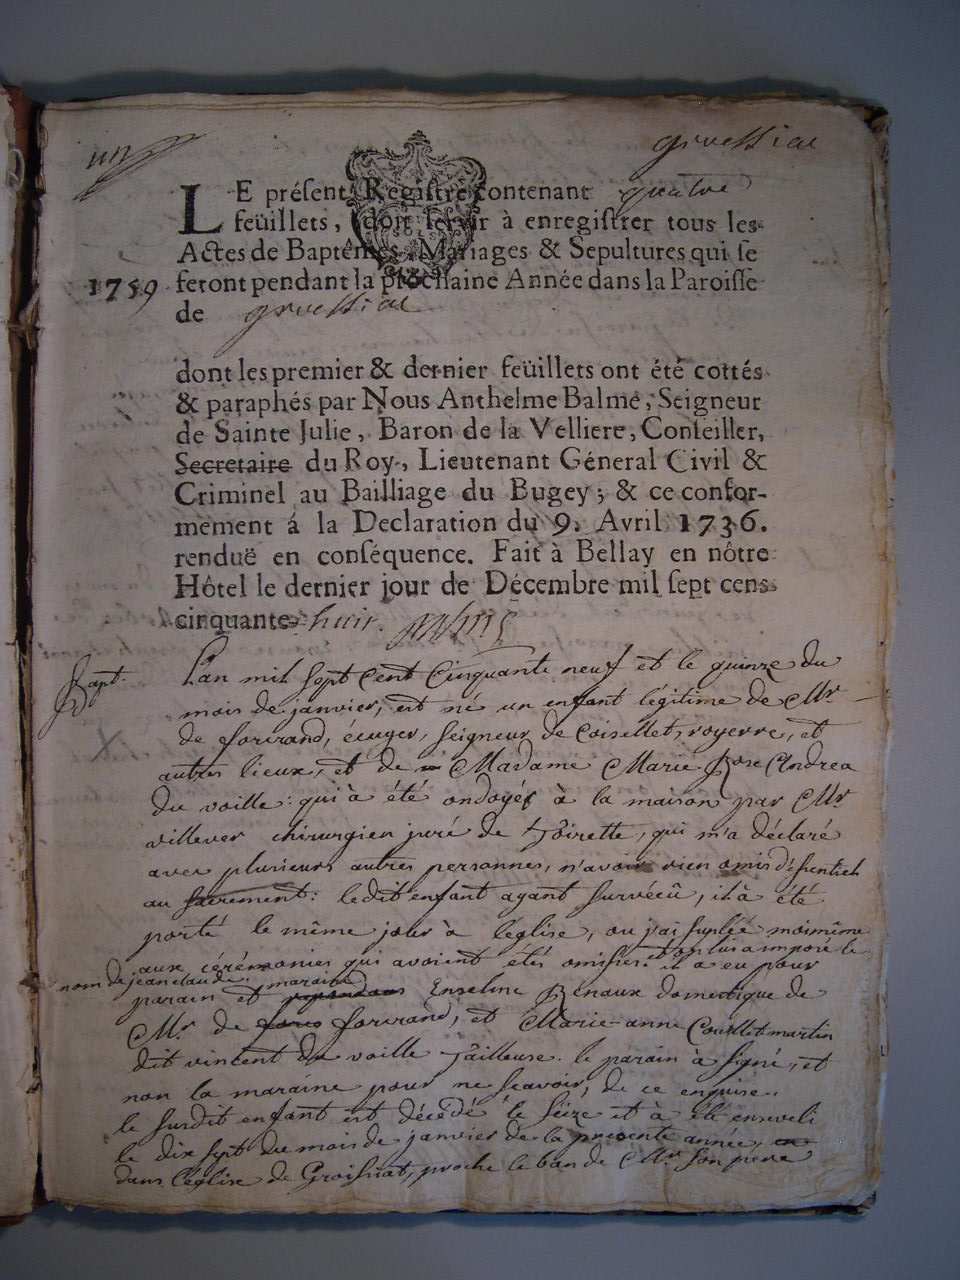 un
gruessiac
LE présent Registre contenant quatre
feüillets, doit servir à enregistrer tous les
Actes de Baptêmes, Mariages & Sepultures qui se
1759 feront pendant la prochaine Année dans la Paroisse
de gruessiac
dont les premier & dernier feüillets ont été cottés
& paraphés par Nous Anthelme Balme, Seigneur
de Sainte Julie, Baron de la Velliere, Conseiller,
Secretaire du Roy, Lieutenant Géneral Civil &
Criminel au Bailliage du Bugey; & ce confor-
mément á la Declaration du 9. Avril 1736.
renduë en conséquence. Fait à Bellay en nôtre
Hôtel le dernier jour de Décembre mil sept cens
cinquante huit.
Bapt. L'an mil sept cent cinquante neuf et le quinze du
mois de janvier, est né un enfant légitime de Mr
de forcrand, écuyer, seigneur de Coisellet, royerre, et
autres lieux, et de Madame Marie Rose Andrea
du voille: qui à été ondoyé à la maison par Mr
villever chirurgien juré de Thoirette, qui m'a déclaré
avec plusieurs autres personnes, n'avoir rien omis d'éssentiel
au sacrement: ledit enfant ayant survécû, il à été
porté le même jour à l'église, ou j'ai suplée moimême
aux cérémonies qui avoient étés omises. et on lui a imposé le
nom de jean claude il a eu pour
parain et maraine Enseline Renaux domestique de
Mr. de forcrand, et Marie-anne Couillet martin
dit vincent du voille Tailleuse. le parain à signé, et
non la maraine pour ne scavoir, de ce enquise.
le susdit enfant est décédé le séize et à été enseveli
le dix sept du mois de janvier de la présente année,
dans l'église de Groissiat, proche le ban de Mr. son pere